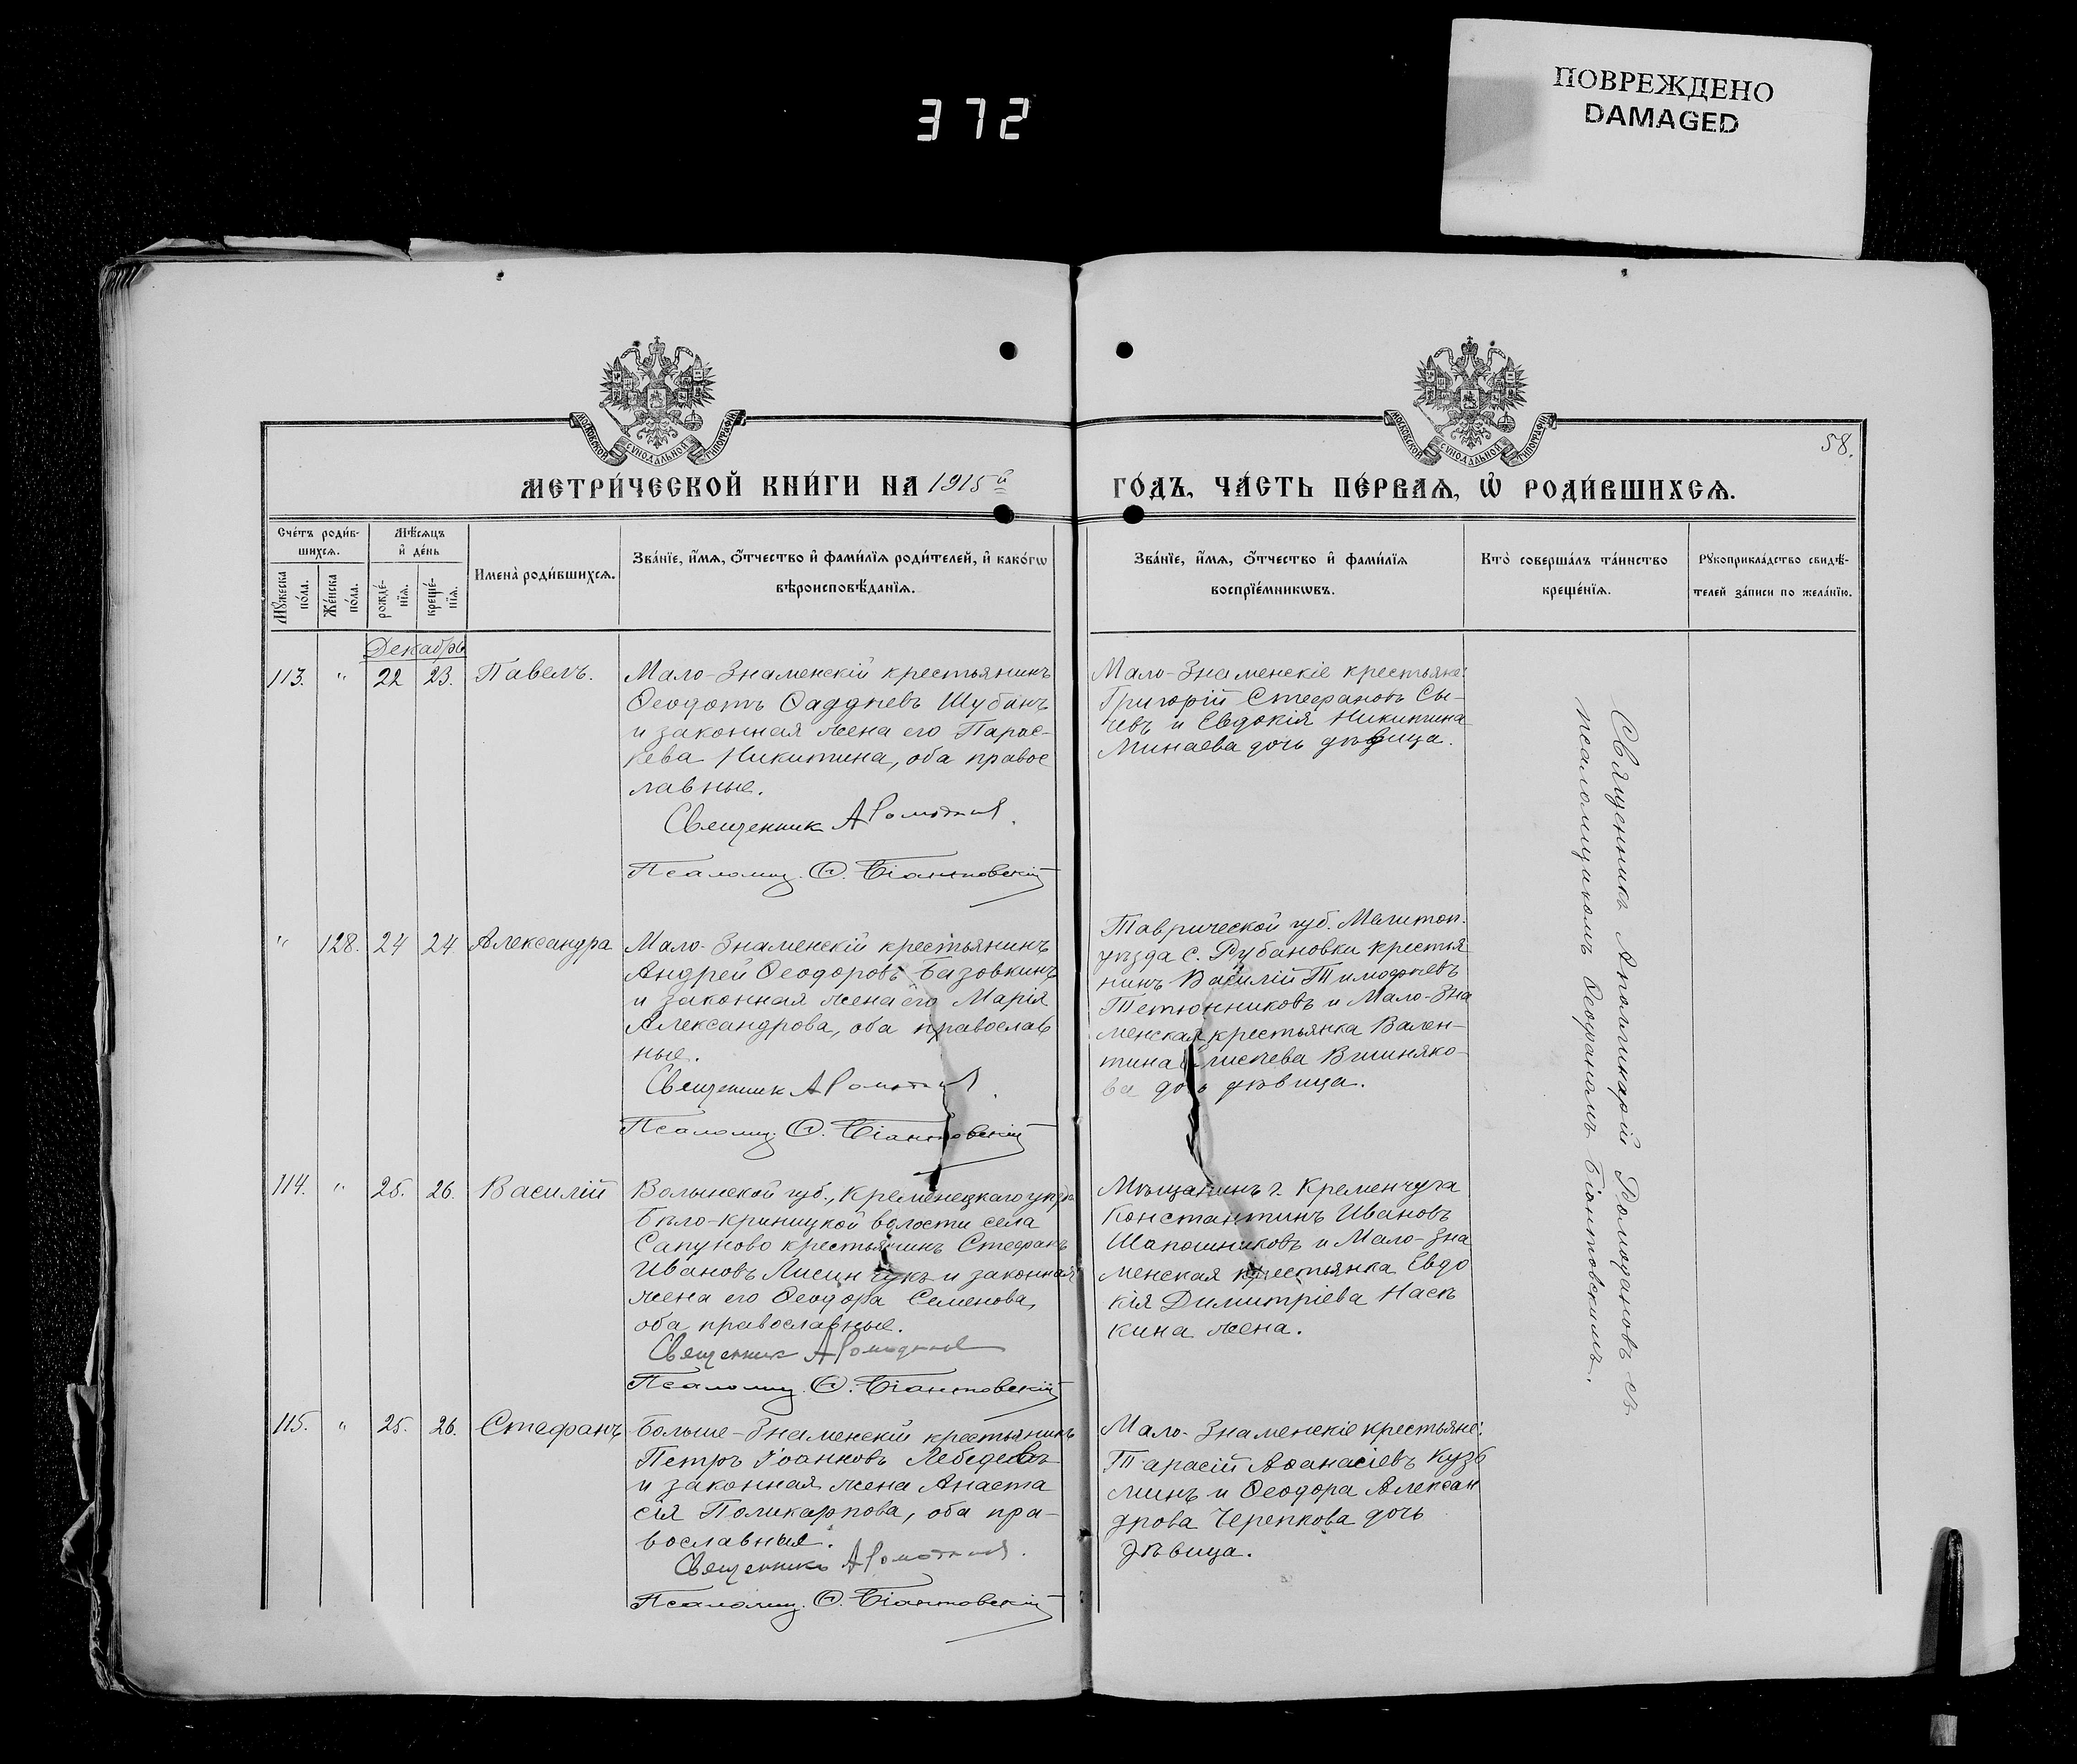 ПОВРЕЖДЕНО
DAMAGED
372
МОСКОВСКОЙ СѴНОДАЛЬНОЙ ТИПОГРАФІИ
МОСКОВСКОЙ СѴНОДАЛЬНОЙ ТИПОГРАФІИ
58.
МЕТРИ́ЧЕСКОЙ КНИ́ГИ НА 1915й
ГО́ДЪ, ЧА́СТЬ ПЕ́РВАѦ, Ѡ҆ РОДИ́ВШИХСѦ.
Сче́тъ роди́в-
шихсѧ.
Мꙋ́жеска
по́ла.
Же́нска
по́ла.
Мѣ́сѧцъ
и҆ де́нь
рожде́-
нїѧ.
креще́-
нїѧ.
Имена̀ роди́вшихсѧ.
Зва́нїе, и҆́мѧ, ѻ҆́тчество и҆ фами́лїѧ роди́телей, и҆ како́гѡ
вѣроисповѣ́данїѧ.
Зва́нїе, и҆́мѧ, ѻ҆́тчество и҆ фами́лїѧ
воспрїе́мникѡвъ.
Кто̀ соверша́лъ та́инство
креще́нїѧ.
Рꙋкоприкла́дство свидѣ́-
телей за́писи по жела́нїю.
Декабрь
113. " 22 23. Павелъ.
Мало-Знаменскій крестьянинъ
Ѳеодотъ Ѳаддѣевъ Шубинъ
и законная жена его Парас-
кева Никитина, оба правос
лавные.
Священник А Ромодановъ
Псаломщ. Ѳ. Біантовскій
Мало-Знаменскіе крестьяне:
Григорій Стефановъ Сы-
чевъ и Евдокія Никитина
Минаева дочь дѣвица.
" 128. 24 24 Александра
Мало-Знаменскій крестьянинъ
Андрей Ѳеодоровъ Базовкинъ
и законная жена его Марія
Александрова, оба православ
ные.
Священник А Ромодановъ
Псаломщ. Ѳ. Біантовскій
Таврической губ. Мелитоп.
уѣзда с. Рубановки крестья
нинъ Василій Тимофѣевъ
Тетюнниковъ и Мало-Зна
менская крестьянка Вален-
тина Вишняко-
ва дочь дѣвица.
114. " 25. 26. Василій
Волынской губ., Кременецкаго уѣзда
Бѣло-Криницкой волости села
Сапуново крестьянинъ Стефанъ
Ивановъ Лисинчукъ и законная
жена его Ѳеодора Семенова,
оба православные.
Священник А Ромодановъ
Псаломщ. Ѳ. Біантовскій
Мѣщанинъ г. Кременчуга
Константинъ Ивановъ
Шапошниковъ и Мало-Зна
менская крестьянка Евдо
кія Димитріева Насѣ
кина жена.
115. " 25. 26. Стефанъ
Больше-Знаменскій крестьянинъ
Петръ Іоанновъ Лебедевъ
и законная жена Анаста
сія Поликарпова, оба пра-
вославные.
Священникъ А Ромодановъ
Псаломщ. Ѳ. Біантовскій
Мало-Знаменскіе крестьяне:
Тарасій Аѳанасіевъ Кузь
минъ и Ѳеодора Алексан
дрова Черепкова дочь
дѣвица.
Священникъ Аполлинарій Ромодановъ съ
псаломщикомъ Ѳеофаномъ Біантовскимъ.